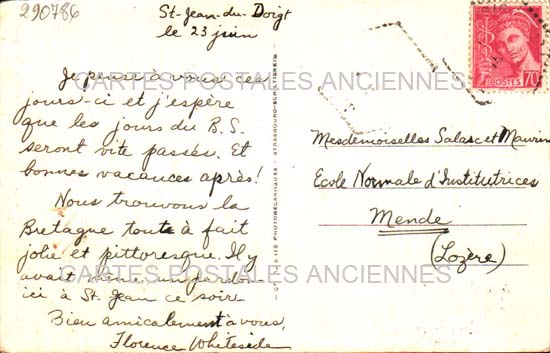 290786
St-Jean-du-Doigt
le 23 juin
Je pense à vous ces
jours-ci et j'espère
que les jours du B.S.
seront vite passés. Et
bonnes vacances après!
Nous trouvons la
Bretagne toute à fait
jolie et pittoresque. Il y
avait même un pardon
ici à St. Jean ce soir.
Bien amicalement à vous,
Florence Whiteside
POSTES 70
Mesdemoiselles Salasc et Maurin
Ecole Normale d'Institutrices
Mende
(Lozère)
PHOTOMECANIQUES - STRASBOURG-SCHILTIGHEIM
CARTES POSTALES ANCIENNES
CARTES POSTALES ANCIENNES